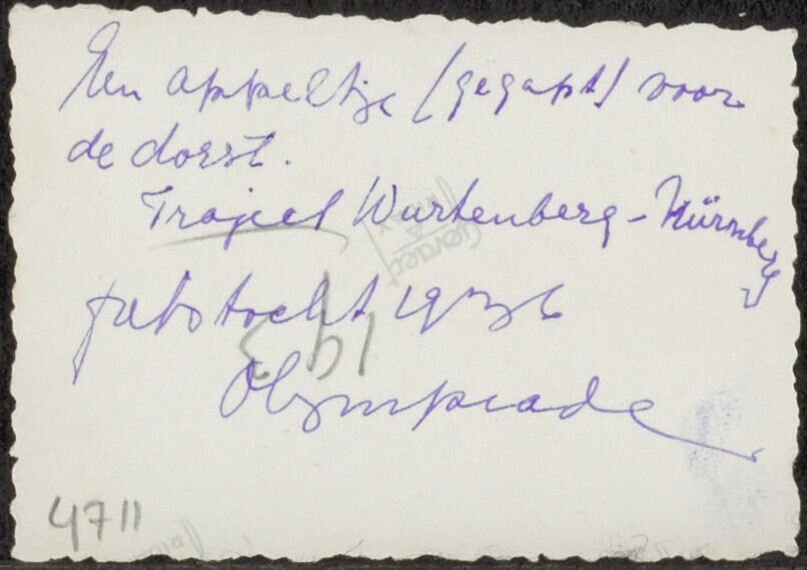 Een appeltje (gegapt) voor
de dorst.
Traject Wurtenberg - Nürnberg
fietstocht 1936
Olympiade
Gevaert
193
4711